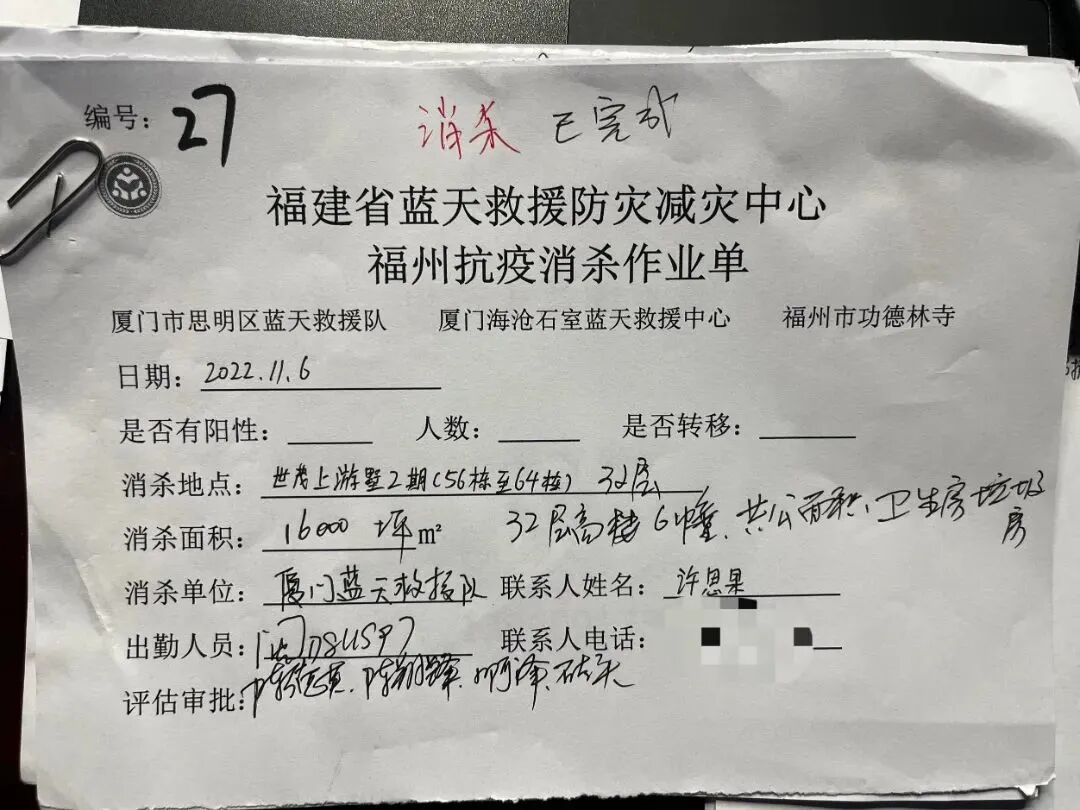 编号: 27
消杀 已完成
福建省蓝天救援防灾减灾中心
福州抗疫消杀作业单
厦门市思明区蓝天救援队 厦门海沧石室蓝天救援中心 福州市功德林寺
日期: 2022.11.6
是否有阳性: 人数: 是否转移:
消杀地点: 世茂上游墅2期(56栋至64栋) 32层
消杀面积: 16000 坪 m² 32层高楼6幢、共公面积、卫生房垃圾房
消杀单位: 厦门蓝天救援队 联系人姓名: 许思果
出勤人员: 联系人电话:
评估审批: